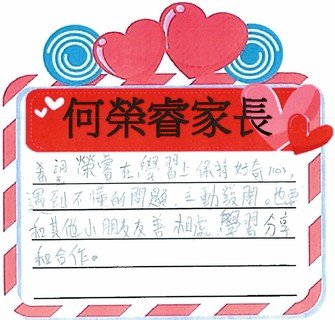 何榮睿家長
希望榮睿在學習上保持好奇心,
遇到不懂的問題,主動發問。也要
和其他小朋友友善相處,學習分享
和合作。